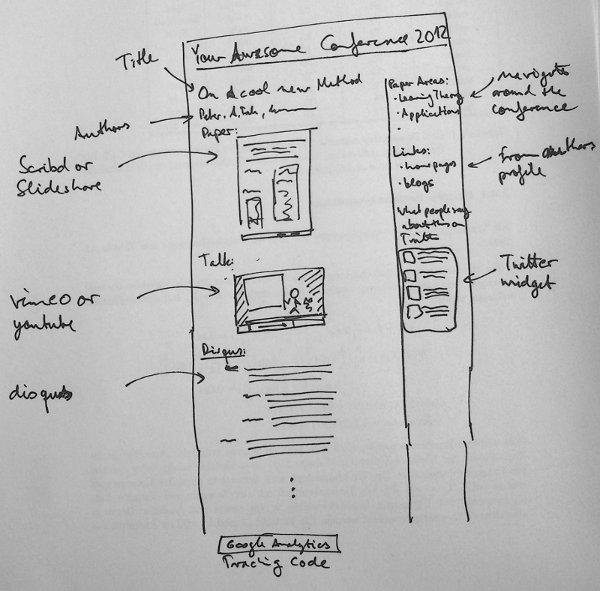 Your Awesome Conference 2012
Title
On A cool new Method
Authors
Peter, A.
Paper:
Scribd or
Slideshare
Talk:
vimeo or
youtube
Disqus:
disqus
Paper Areas:
· Learning Theory
· Applications
·
Links:
· homepages
· blogs
What people say
about this on
Twitter
navigate
around the
conference
From authors
profile
Twitter
widget
Google Analytics
Tracking Code